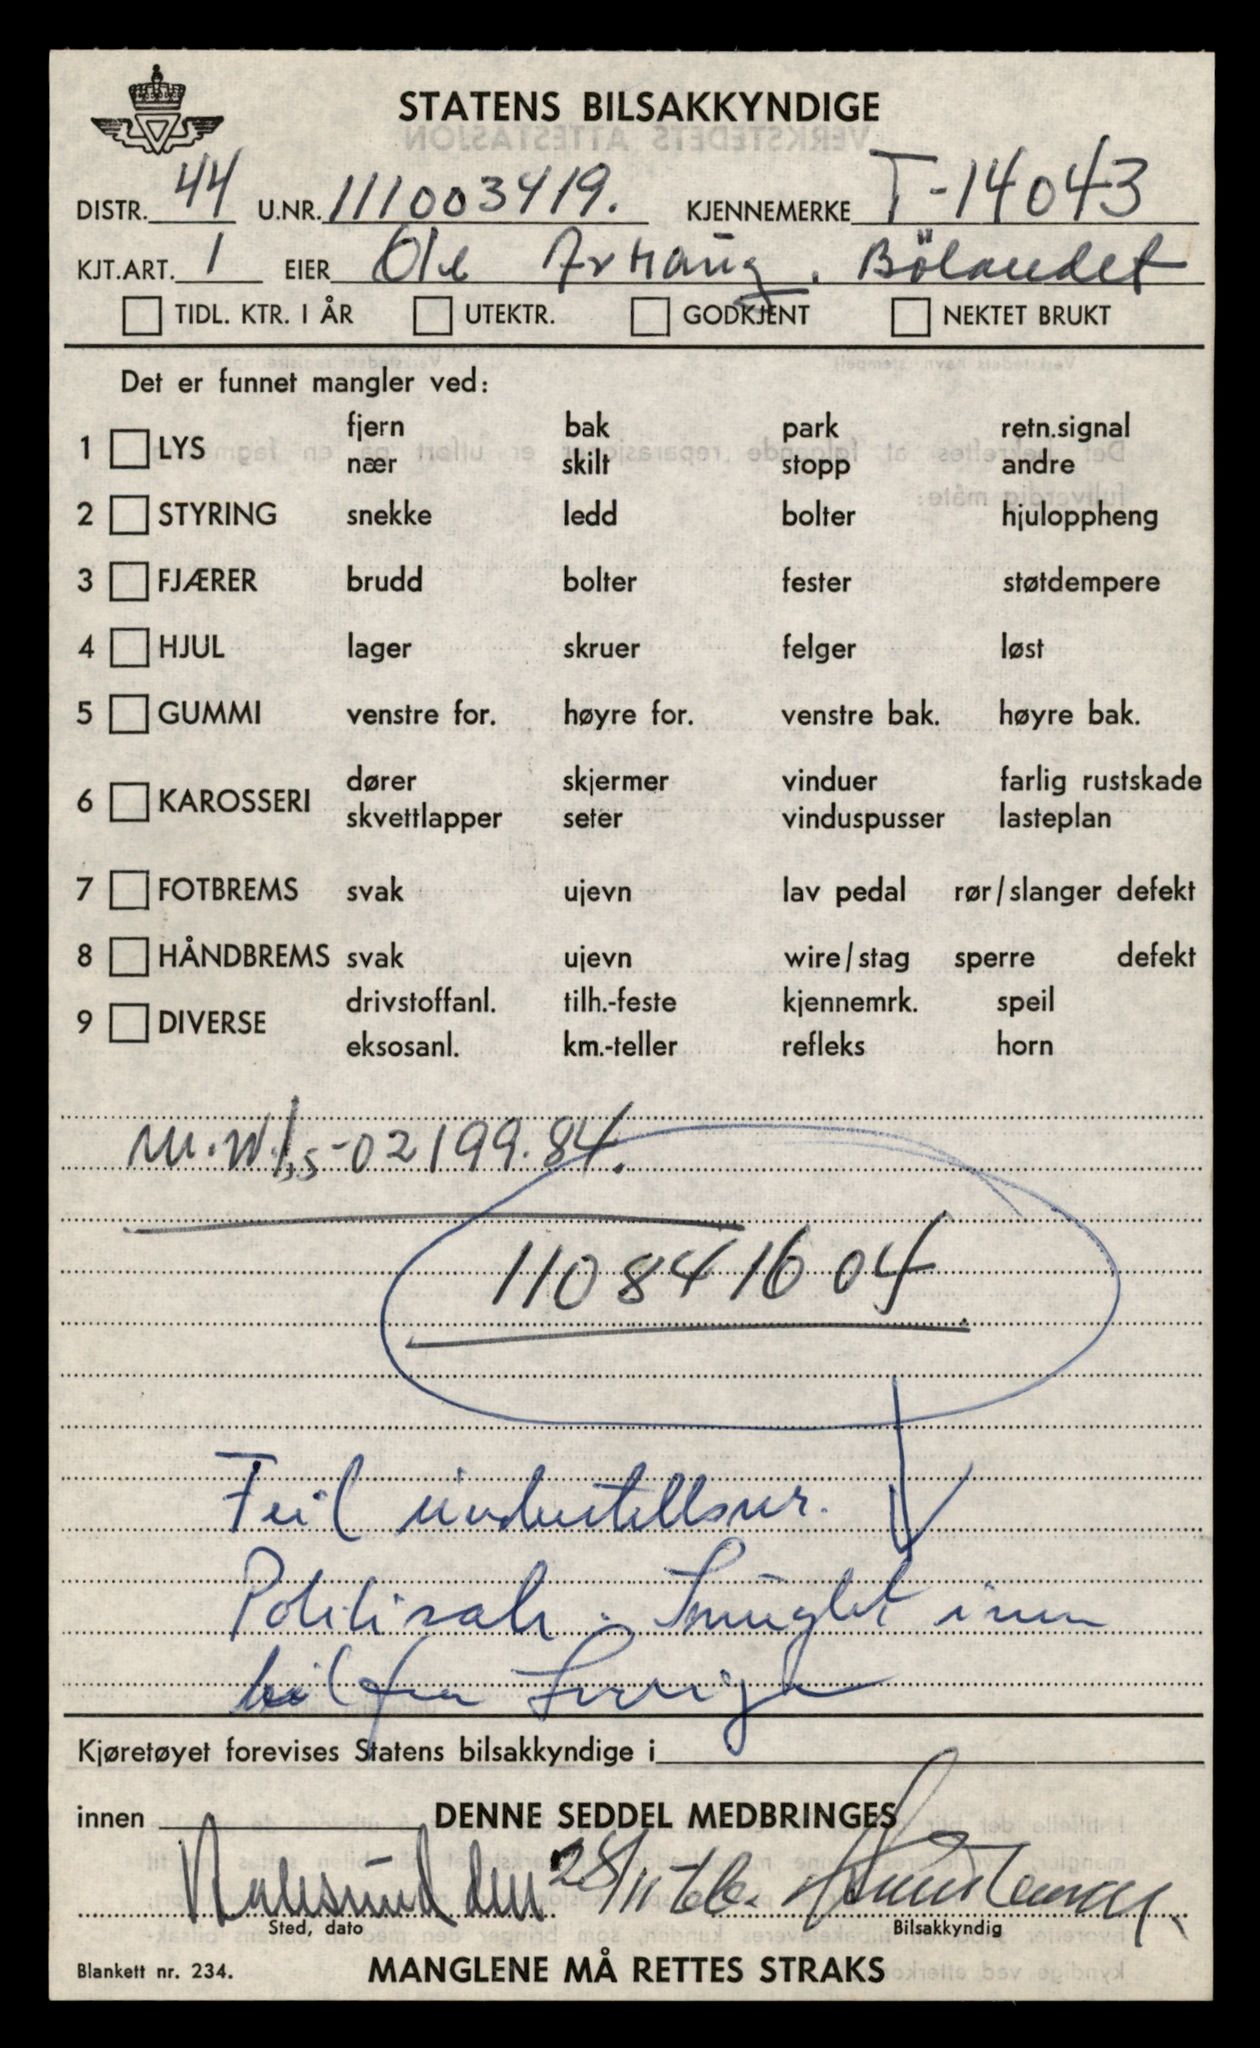 STATENS BILSAKKYNDIGE
DISTR. 44 U.NR. 111003419. KJENNEMERKE T-14043
KJT.ART. 1 EIER Ole Bölandet
TIDL. KTR. I ÅR UTEKTR. GODKJENT NEKTET BRUKT
Det er funnet mangler ved:
fjern bak park retn.signal
1 LYS
nær skilt stopp andre
2 STYRING snekke ledd bolter hjuloppheng
3 FJÆRER brudd bolter fester støtdempere
4 HJUL lager skruer felger løst
5 GUMMI venstre for. høyre for. venstre bak. høyre bak.
dører skjermer vinduer farlig rustskade
6 KAROSSERI
skvettlapper seter vinduspusser lasteplan
7 FOTBREMS svak ujevn lav pedal rør/slanger defekt
8 HÅNDBREMS svak ujevn wire/stag sperre defekt
drivstoffanl. tilh.-feste kjennemrk. speil
9 DIVERSE
eksosanl. km.-teller refleks horn
02199.84.
110841604
Feil understellsnr.
Politisak. Smuglet inn
bil fra Sverige
Kjøretøyet forevises Statens bilsakkyndige i
innen DENNE SEDDEL MEDBRINGES
den 28/11
Sted, dato Bilsakkyndig
Blankett nr. 234. MANGLENE MÅ RETTES STRAKS